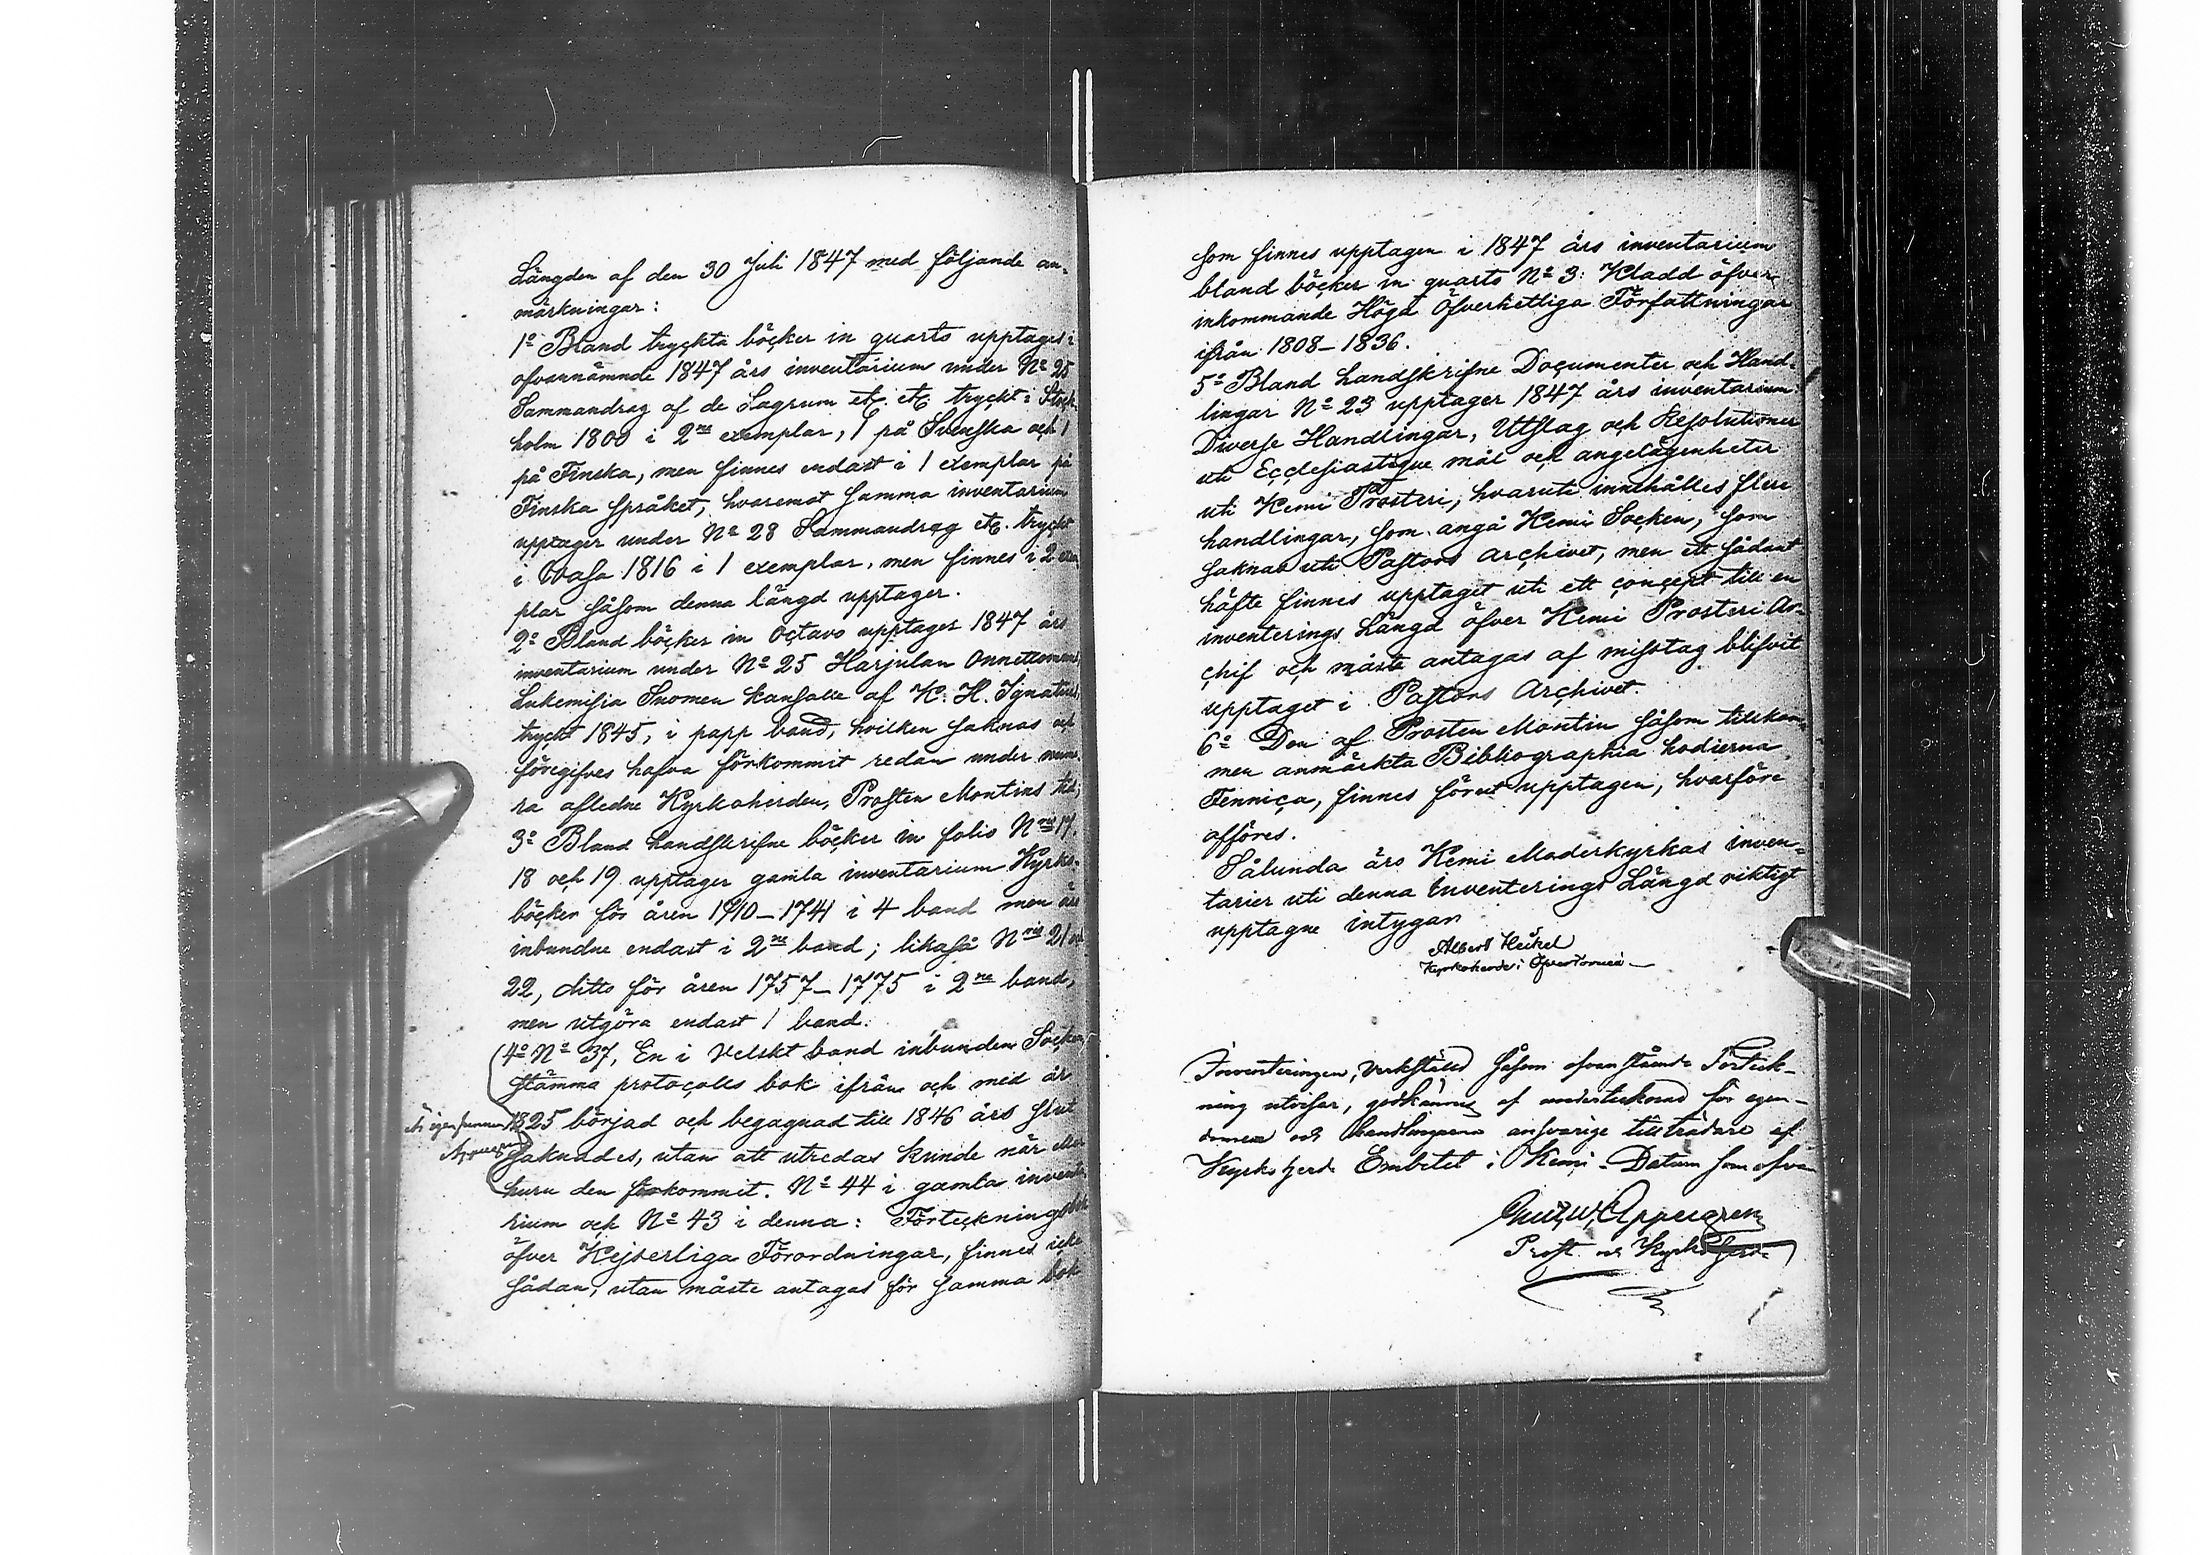 Längden af den 30 Juli 1847 med följande an-
märkningar:
1º Bland tryckta böcker in quarto upptages i
ofvannämnde 1847 års inventarium under Nº 25
Sammandrag af de Lagrum etc. etc. tryckt i Stock-
holm 1800 i 2ne exemplar, 1 på Svenska och 1
på Finska, men finnes endast i 1 exemplar på
Finska språket, hvaremot samma inventarium
upptager under Nº 28 Sammandrag etc. tryckt
i Wasa 1816 i 1 exemplar, men finnes i 2 exem
plar såsom denna längd upptager.
2º Bland böcker in Octavo upptager 1847 års
inventarium under Nº 25 Harjulan Onnettomuus,
Lukemisia Suomen kansalle af K. H. Ignatius,
tryckt 1845, i papp band, hvilken saknas och
föregifves hafva förkommit redan under num-
ra afledne Kyrkoherden, Prosten Montins tid;
3º Bland handskrifne böcker in folio Nris 17,
18 och 19 upptager gamla inventarium Kyrko-
böcker för åren 1710–1741 i 4 band men äro
inbundne endast i 2ne band; likaså Nris 21 och
22, ditto för åren 1757–1775 i 2ne band,
men utgöra endast 1 band.
4º Nº 37, En i Velskt band inbunden Socken-
stämma protocolls bok ifrån och med år
Är igen funnen
1825 börjad och begagnad till 1846 års slut
saknades, utan att utredas kunde när eller
huru den förkommit. Nº 44 i gamla inventa
rium och Nº 43 i denna: Förteckningsbok
öfver Kejserliga Förordningar, finnes icke
sådan, utan måste antagas för samma bok
som finnes upptagen i 1847 års inventarium
bland böcker in quarto Nº 3: Kladd öfver
inkommande Höga Öfverhetliga Författningar
ifrån 1808–1836.
5º Bland handskrifne Documenter och Hand-
lingar Nº 23 upptager 1847 års inventarium:
Diverse Handlingar, Utslag och Resolutioner
uti Ecclesiastique mål och angelägenheter
uti Kemi Prosteri, hvaruti innehålles flere
handlingar, som angå Kemi Socken, som
saknas uti Pastors Archivet, men ett sådant
häfte finnes upptaget uti ett concept till en
inventerings Längd öfver Kemi Prosteri Ar-
chif och måste antagas af misstag blifvit
upptaget i Pastors Archivet.
6º Den af Prosten Montin såsom tillkom-
men anmärkta Bibliographia hodierna
Fennica, finnes förut upptagen, hvarföre
afföres.
Sålunda äro Kemi Moderkyrkas inven-
tarier uti denna Inventerings Längd riktigt
upptagne intygar
Albert Heikel
Kyrkoherde i Öfvertorneå
Inventeringen, verkställd såsom ofvanstående Förteck-
ning utvisar, godkännes af undertecknad för egen-
domen och handlingarne ansvarige tillträdare af
Kyrkoherde Embetet i Kemi. Datum som ofvan
Gust. W. Appelgren
Prost och Kyrkoherde